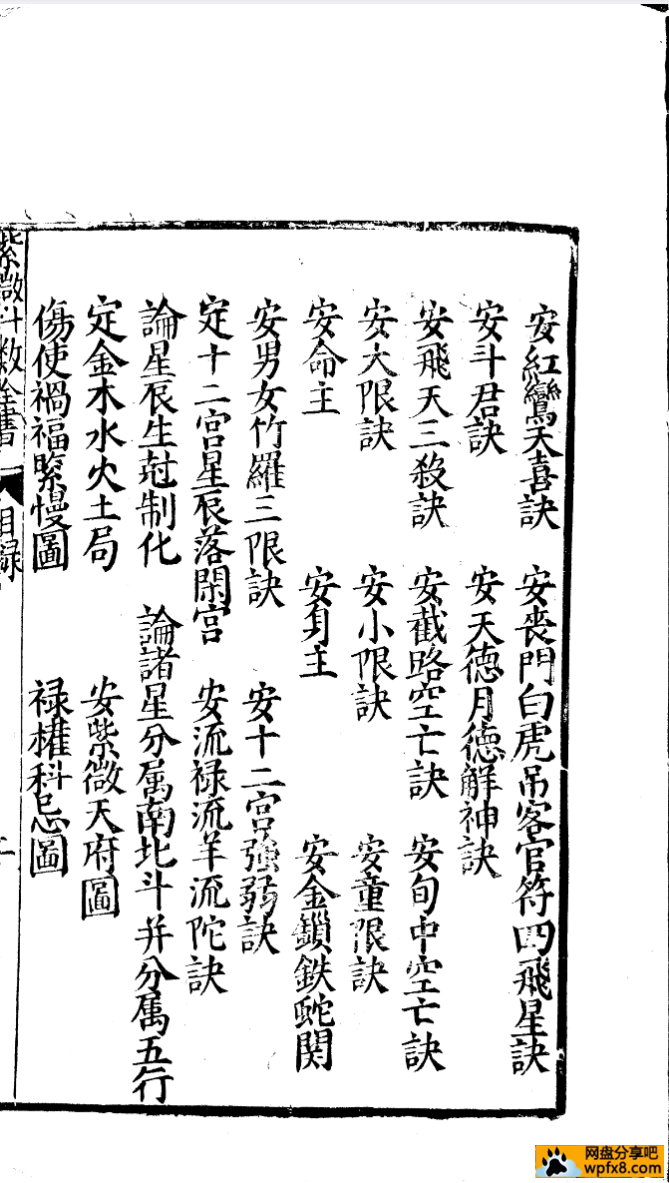 安紅鸞天喜訣　安喪門白虎吊客官符四飛星訣
安斗君訣　安天德月德解神訣
安飛天三殺訣　安截路空亡訣　安旬中空亡訣
安大限訣　安小限訣　安童限訣
安命主　安身主　安金鎖鉄蛇関
安男女竹羅三限訣　安十二宮強弱訣
定十二宮星辰落閑宮　安流禄流羊流陀訣
論星辰生尅制化　論諸星分属南北斗并分属五行
定金木水火土局　安紫微天府圖
傷使禍福緊慢圖　禄權科忌圖
紫微斗数全書　目録
网盘分享吧
wpfx8.com